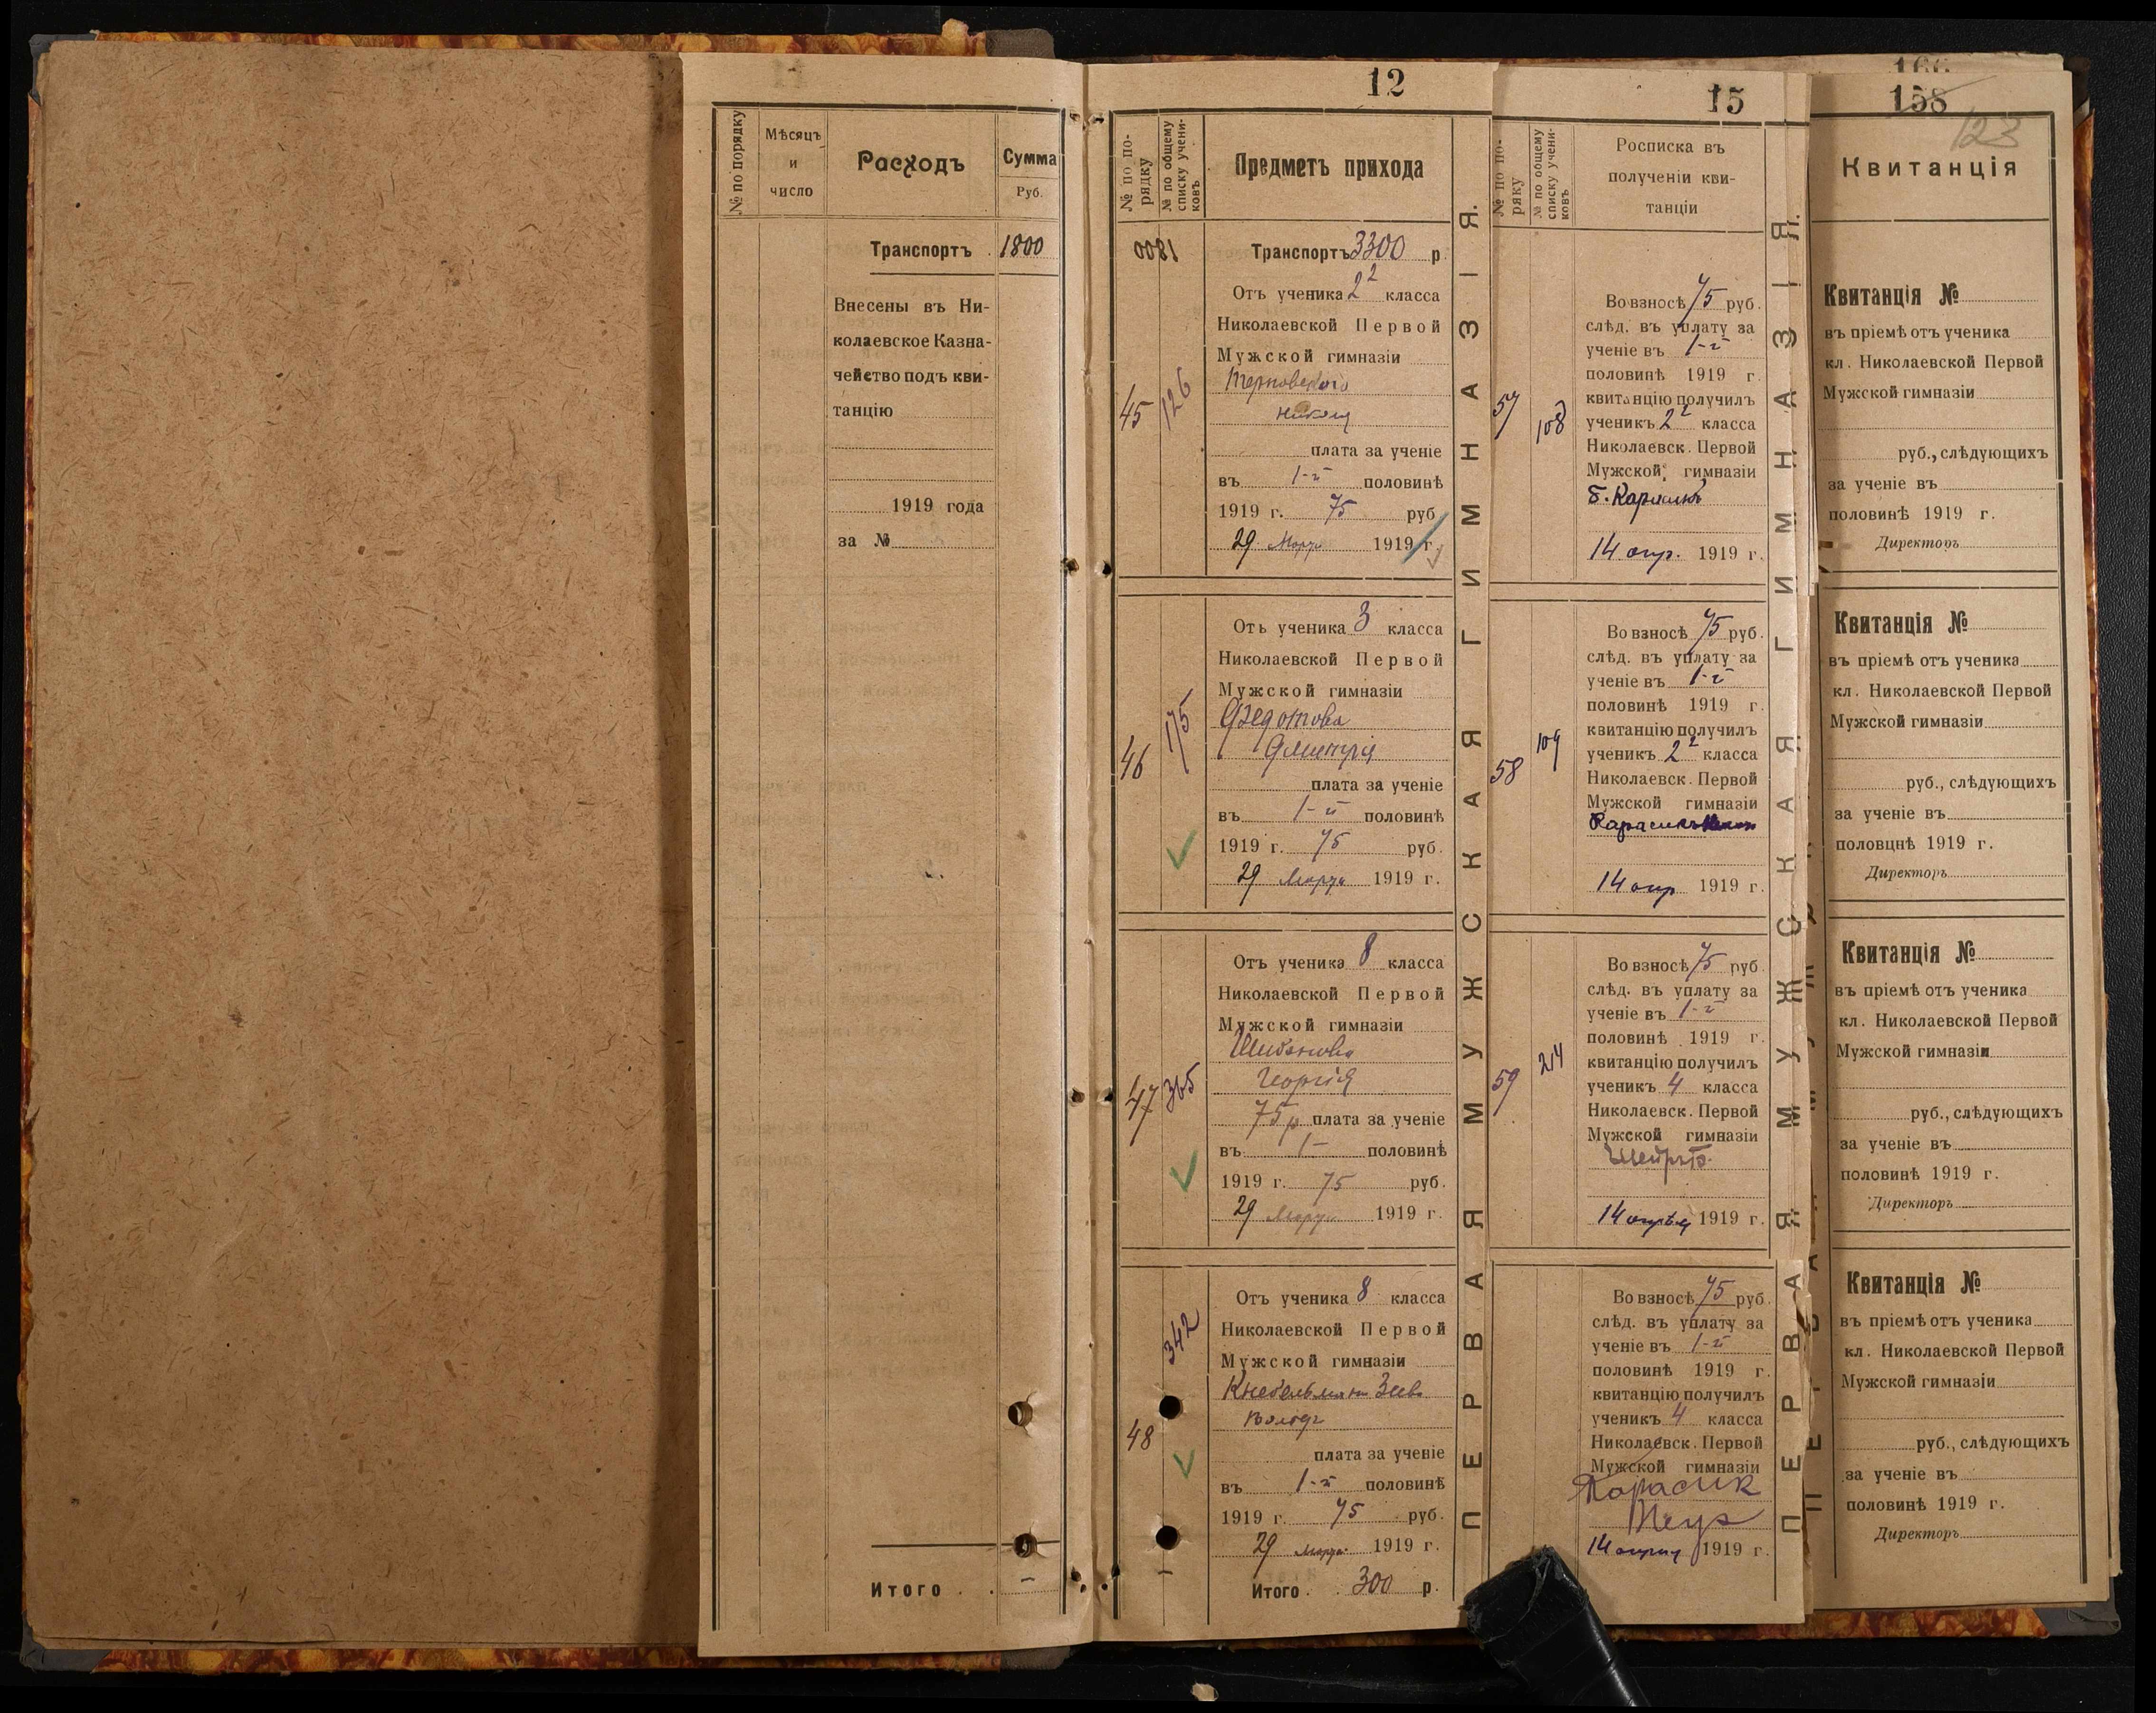 № по порядку
Мѣсяцъ
и
число
Расходъ
Сумма
Руб.
Транспортъ . 1800
Внесены въ Ни-
колаевское Казна-
чейство подъ кви-
танцію
1919 года
за №
Итого . . –
12
№ по по-
рядку
№ по общему
списку учени-
ковъ
Предметъ прихода
1800
Транспортъ 3300 р.
45
126
Отъ ученика 2² класса
Николаевской Первой
Мужской гимназіи
Терновского
плата за ученіе
въ 1-й половинѣ
1919 г. 75 руб
29 Марта 1919 г.
46
175
Отъ ученика 3 класса
Николаевской Первой
Мужской гимназіи
Федотова
Дмитрія
плата за ученіе
въ 1-й половинѣ
1919 г. 75 руб.
29 Марта 1919 г.
47
365
Отъ ученика 8 класса
Николаевской Первой
Мужской гимназіи
Шибанова
Георгія
75 р плата за ученіе
въ 1- половинѣ
1919 г. 75 руб.
29 Марта 1919 г.
48
342
Отъ ученика 8 класса
Николаевской Первой
Мужской гимназіи
Кнебельман
плата за ученіе
въ 1-й половинѣ
1919 г. 75 руб.
29 марта 1919 г.
Итого . . 300 р.
ПЕРВАЯ МУЖСКАЯ ГИМНАЗІЯ.
15
№ по по-
ряку
№ по общему
списку учени-
ковъ
Росписка въ
полученіи кви-
танціи
57
108
Во взносѣ 75 руб.
слѣд. въ уплату за
ученіе въ 1-й
половинѣ 1919 г.
квитанцію получилъ
ученикъ 2² класса
Николаевск. Первой
Мужской гимназіи
Б. Карасикъ
14 апр. 1919 г.
58
109
Во взносѣ 75 руб.
слѣд. въ уплату за
ученіе въ 1-й
половинѣ 1919 г.
квитанцію получилъ
ученикъ 2² класса
Николаевск. Первой
Мужской гимназіи
Карасикъ
14 апр 1919 г.
59
214
Во взносѣ 75 руб.
слѣд. въ уплату за
ученіе въ 1-й
половинѣ 1919 г.
квитанцію получилъ
ученикъ 4 класса
Николаевск. Первой
Мужской гимназіи
14 апрѣля 1919 г.
Во взносѣ 75 руб.
слѣд. въ уплату за
ученіе въ 1-й
половинѣ 1919 г.
квитанцію получилъ
ученикъ 4 класса
Николаевск. Первой
Мужской гимназіи
Карасик
14 апрля 1919 г.
ПЕРВАЯ МУЖСКАЯ ГИМНАЗІЯ.
166
158
123
Квитанція
Квитанція №
въ пріемѣ отъ ученика
кл. Николаевской Первой
Мужской гимназіи
руб., слѣдующихъ
за ученіе въ
половинѣ 1919 г.
Директоръ
Квитанція №
въ пріемѣ отъ ученика
кл. Николаевской Первой
Мужской гимназіи
руб., слѣдующихъ
за ученіе въ
половцнѣ 1919 г.
Директоръ
Квитанція №
въ пріемѣ отъ ученика
кл. Николаевской Первой
Мужской гимназіи
руб., слѣдующихъ
за ученіе въ
половинѣ 1919 г.
Директоръ
Квитанція №
въ пріемѣ отъ ученика
кл. Николаевской Первой
Мужской гимназіи
руб., слѣдующихъ
за ученіе въ
половинѣ 1919 г.
Директоръ